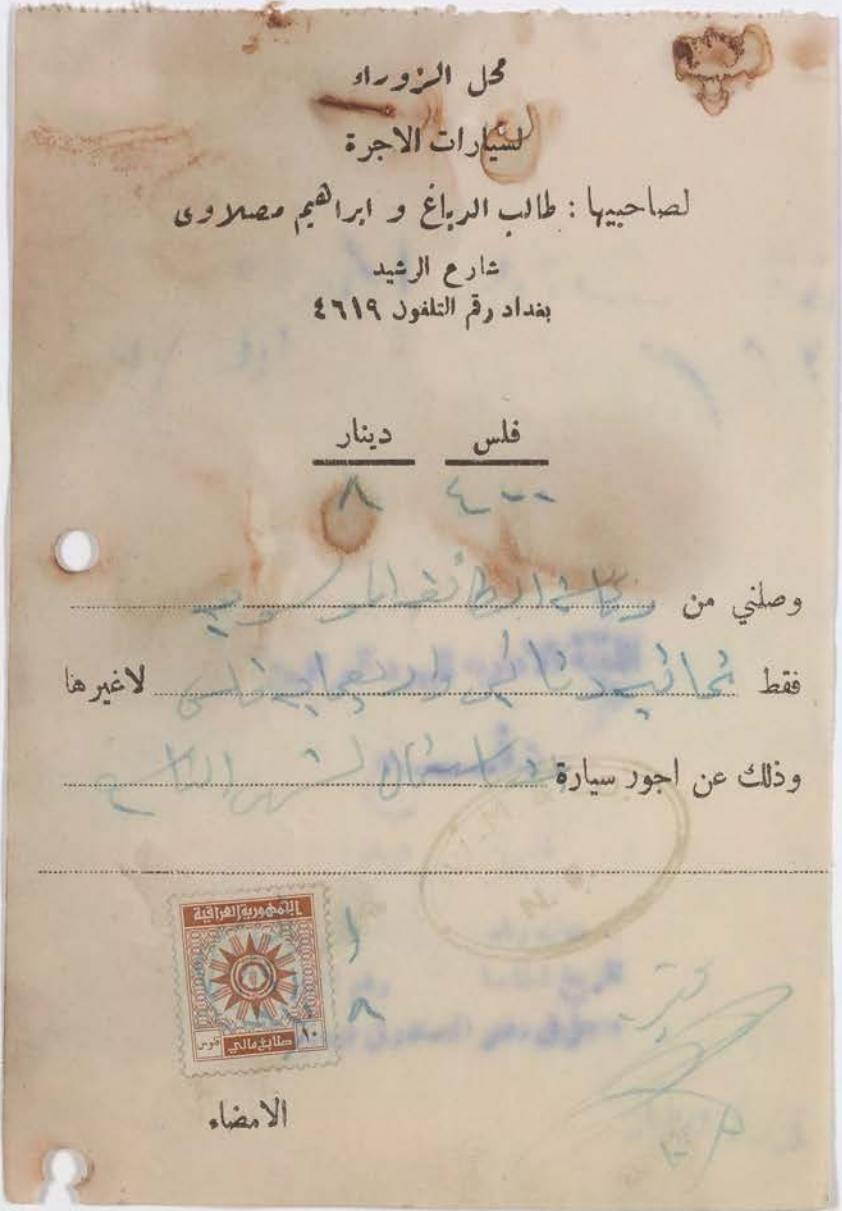 محل الزوراء
لسيارات الاجرة
لصاحبيها : طالب الدباغ و ابراهيم مصلاوى
شارع الرشيد
بغداد رقم التلفون ٤٦١٩
فلس دينار
٤٠٠ ٨
وصلني من رئاسة الطائفة الموسوية
فقط ثمانية دنانير واربعماية فلس لاغيرها
وذلك عن اجور سيارة لشهر التاسع
الجمهورية العراقية
١٠ طابع مالي فلوس
الامضاء